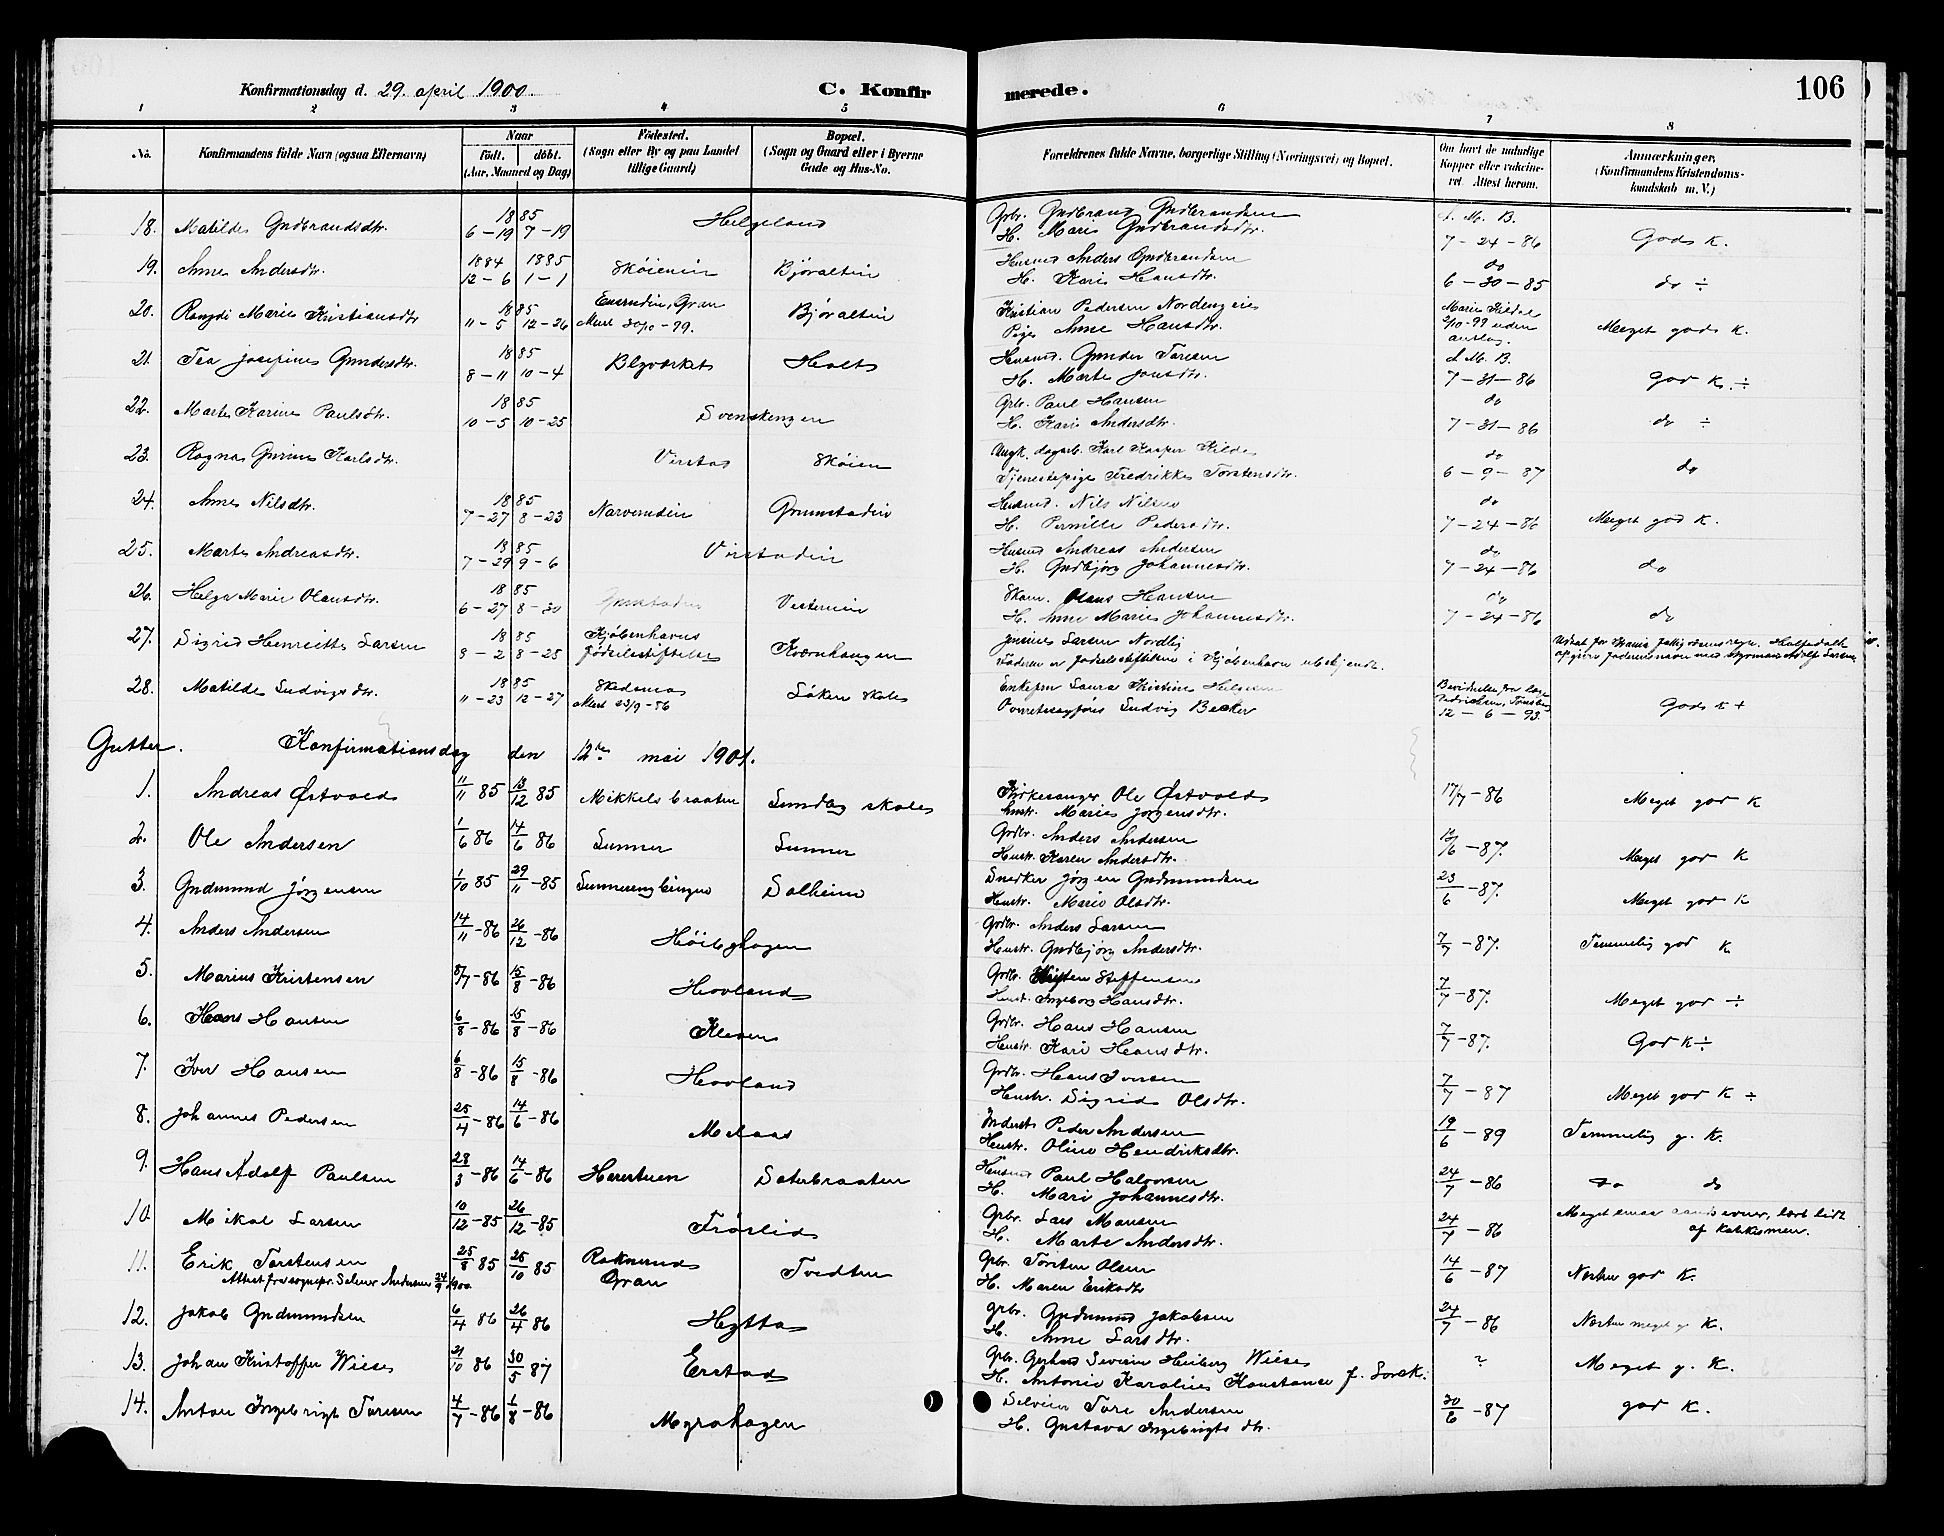 106
Konfirmationsdag d. 29. april 1900. C. Konfirmerede.
1 2 3 4 5 6 7 8
No. Konfirmandens fulde Navn (ogsaa Efternavn) Naar födt. döbt. (Aar, Maaned og Dag) Födested. (Sogn eller By og paa Landet tillige Gaard) Bopæl. (Sogn og Gaard eller i Byerne Gade og Hus-No. Forældrenes fulde Navne, borgerlige Stilling (Næringsvei) og Bopæl. Om havt de naturlige Kopper eller vakcineret. Attest herom. Anmærkninger, (Konfirmandens Kristendomskundskab m. V.)
18. Matilde Gudbrandsdtr. 1885 6-19 7-19 Helgeland Gbr. Gudbrand Gudbrandsen H. Mari Gudbrandsdtr. d. M. B. 7-24-86 Gods K.
19. Anne Andersdtr. 1884 12-6 1885 1-1 Sköienein Björaltin Husmd Anders Gudbrandsen H. Kari Hansdtr. do 6-30-85 do ÷
20. Rangdi Marie Kristiansdtr 1885 11-5 12-26 Gran Attest 30/10-99. Björaltin Kristian Pedersen Nordengeie Pige Anne Hansdtr. 2/10-99 uden Meget gods K.
21. Tea Josefine Gundersdtr. 1885 8-11 10-4 Blyværket Holt Husmd. Gunder Toresen H. Marte Jonsdtr. d. M. B. 7-31-86 God K. ÷
22. Marte Karine Paulsdtr. 1885 10-5 10-25 Svenskengen Grbr. Paul Hansen H. Kari Andersdtr. do 7-31-86 do ÷
23. Ragna Gurine Karlsdtr. Virstad Sköien Ungk. dagarb. Karl Kasper Kilde Tjenestepige Fredrikke Torstensdtr. do 6-9-87 do
24. Anne Nilsdtr. 1885 7-27 8-23 Narverudein Grimstadein Husmd. Nils Nilsen H. Pernille Pedersdtr. do 7-24-86 Meget god K.
25. Marte Andreasdtr. 1885 7-29 9-6 Virstadein Husmd Andreas Andersen H. Gudbjørg Johannesdtr. do 7-24-86 do
26. Helga Marie Olausdtr. 1885 6-27 8-30 Vesterein Skom. Olaus Hansen H. Anne Marie Johannesdtr. do 7-24-86 do
27. Sigrid Henriette Larsen 1885 8-2 8-25 Kjöbenhavns födselsstiftelse Kværnhaugen Jensine Larsen Nordlie Faderen er födselsstiftelsen i Kjöbenhavn ubekjendt.
28. Matilde Ludvigsdtr. 1885 11-23 12-27 Skedsmo Attest 23/9-86 Løken skole Enkefru Laura Kristine Overretssagförer Ludvig Becker 12-6-93. Gods K +
Gutter. Konfirmationsdag den 12te mai 1901.
1. Andreas Østvold 11/11 85 13/12 85 Mikkelsbraaten Sundby skole Kirkesanger Ole Østvold Hustr. Marie Jörgensdtr. 17/7-86 Meget god K
2. Ole Andersen 1/6 86 14/6 86 Sunner Sunner Grdbr. Anders Andersen Hustr. Karen Andersdtr. 16/6-87. Meget god K
3. Gudmund Jörgensen 1/10 85 29/11-85 Sunnerengbingen Solheim Snedker Jörgen Gudmundsen Hustr. Marie Olsdtr. 23/6-87. Meget god K
4. Anders Andersen 14/11-86 26/12-86 Höibyhagen Grdbr. Anders Larsen Hustr. Gudbjörg Andersdtr. 7/7-87. Temmelig god K
5. Marius Kristensen 8/7-86 15/8-86 Hovland Grdbr. Kristen Steffensen Hustr. Ingeborg Hansdtr. 7/7-87. Meget god ÷
6. Hans Hansen 6/8-86 15/8-86 Kleven Grdbr. Hans Hansen Hustr. Kari Hansdtr. 7/7-87. God K ÷
7. Iver Hansen 6/8-86 15/8-86 Hovland Grdbr. Hans Iversen Hustr. Sigrid Olsdtr. 7/7-87 Meget god K ÷
8. Johannes Pedersen 25/4-86 14/6-86 Melaas Inderst Peder Andersen Hustr. Oline Hendriksdtr. 19/6-89 Temmelig g. K.
9. Hans Adolf Paulsen 28/3-86 14/6-86 Harestuen Sæterbraaten Husmd Paul Halvorsen H. Mari Johannesdtr. 24/7-86 do do
10 Mikal Larsen 10/12-85 26/12-85 Trörlid Gbr. Lars Monsen H. Marte Andersdtr. 24/7-86 Meget smaa aandsevner, lært lidt af Katekismen.
11. Erik Torstensen 25/8 85 25/10 85 Raknerud Gran Tvedten Gbr. Torsten Olsen H. Maren Eriksdtr 14/6-87 Næsten god K.
Attest fra sognepr. Selmer Andersen 24/9 1900
12. Jakob Gudmundsen 6/4 86 26/4 86 Hytta grbr. Gudmund Jakobsen H. Anne Larsdtr. 24/7-86 Næsten meget g. K.
13. Johan Kristoffer Wiese 21/10 86 30/5 87 Erstad Grbr. Gerhard Severin Heiberg Wiese H. Antonie Karoline Konstance f. ? Meget g. K.
14. Anton Ingebrigt Toresen 4/7-86 1/8-86 Myrahagen Selveier Tore Andersen H. Gustava Ingebrigtsdtr. 30/6-87 god K.